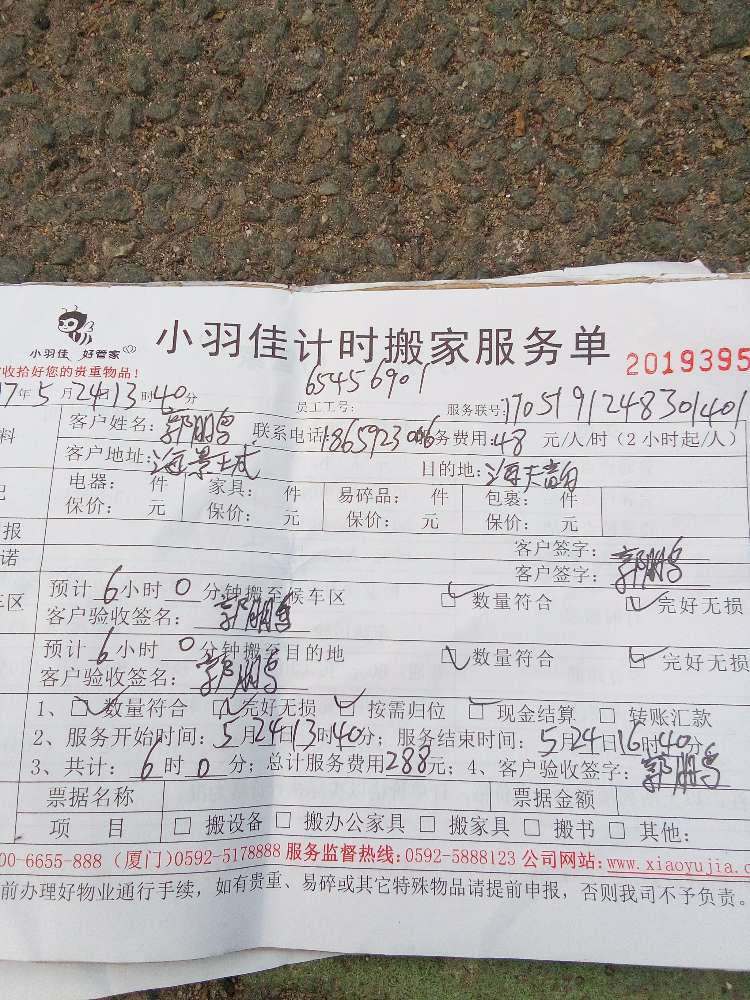 小羽佳 好管家 小羽佳计时搬家服务单 2019395
收拾好您的贵重物品!
17年5月24日13时40分 员工工号: 65456901 服务联号: 1705191248301401
料 客户姓名: 郭鹏 联系电话: 务费用: 48 元/人/时(2小时起/人)
客户地址: 海景 目的地: 海天
电器: 件 家具: 件 易碎品: 件 包裹: 件
保价: 元 保价: 元 保价: 元 保价: 元
报 客户签字:
诺 客户签字: 郭鹏
车区 预计 6 小时 0 分钟搬至候车区 数量符合 完好无损
客户验收签名: 郭鹏
预计 6 小时 0 分钟搬至目的地 数量符合 完好无损
客户验收签名: 郭鹏
1、数量符合 完好无损 按需归位 现金结算 转账汇款
2、服务开始时间: 5月24日13时40分; 服务结束时间: 5月24日16时40分
3、共计: 6 时 0 分; 总计服务费用288元; 4、客户验收签字: 郭鹏
票据名称 票据金额
项 目 搬设备 搬办公家具 搬家具 搬书 其他:
00-6655-888 (厦门)0592-5178888 服务监督热线:0592-5888123 公司网站:www.xiaoyujia.c
前办理好物业通行手续,如有贵重、易碎或其它特殊物品请提前申报,否则我司不予负责。